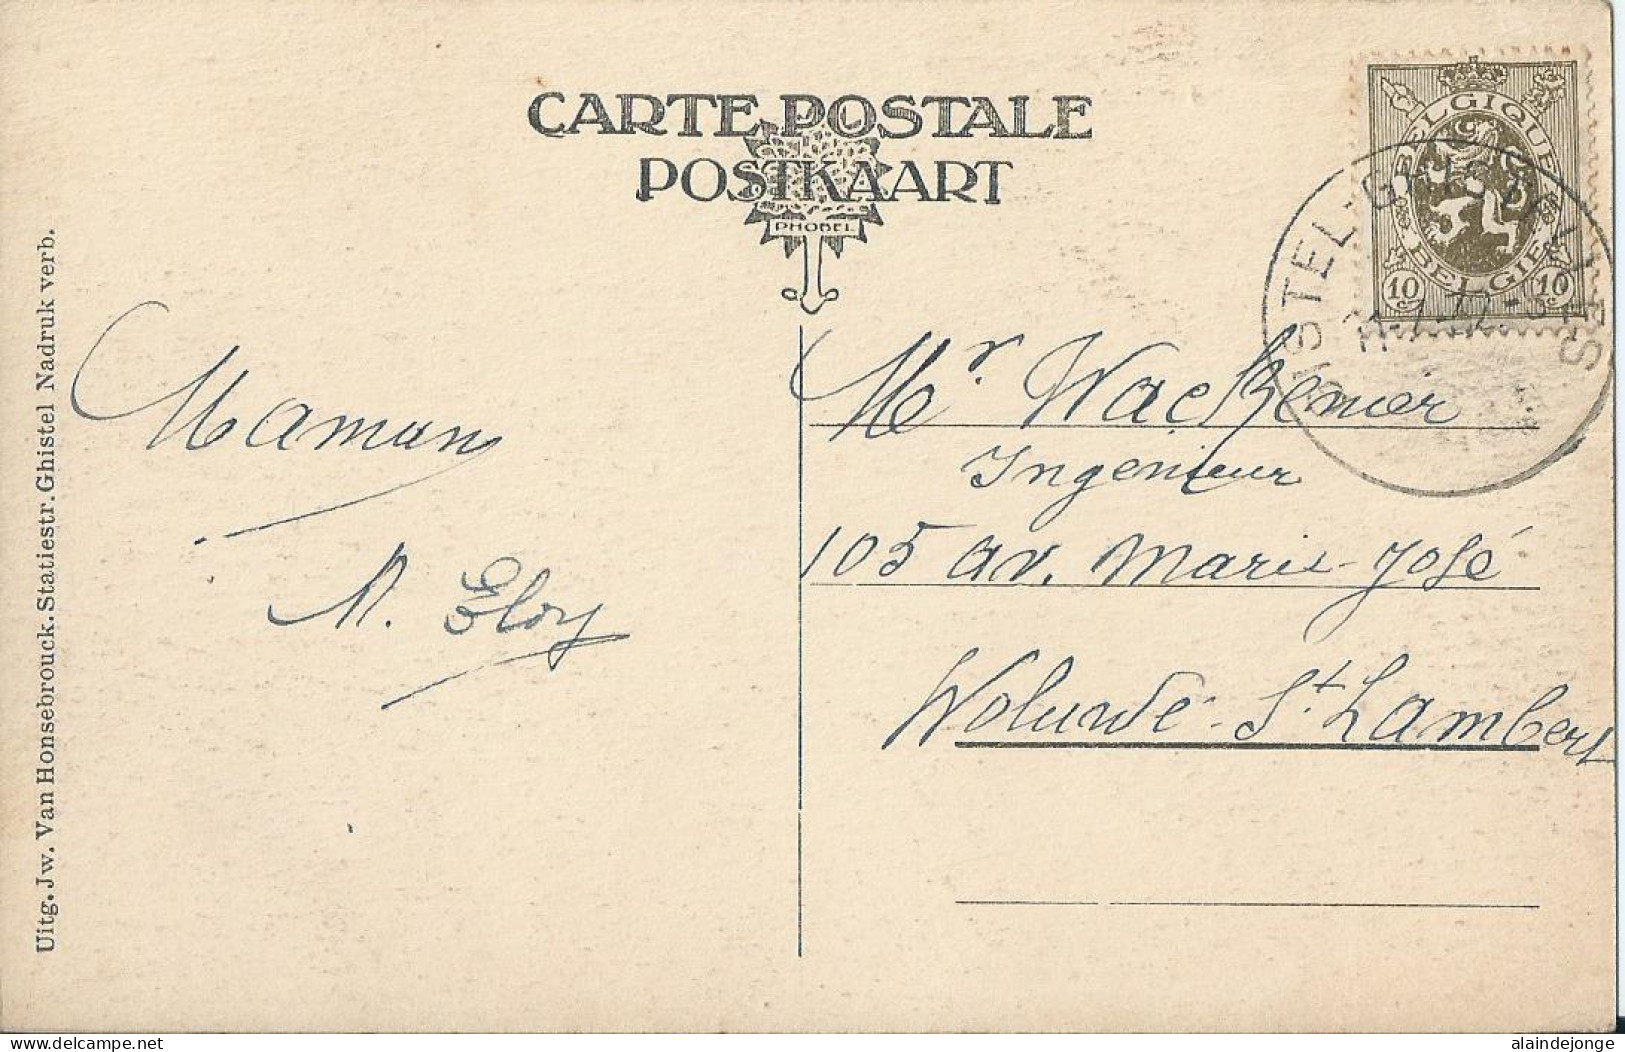 CARTE POSTALE
POSTKAART
PHOBEL
BELGIQUE
BELGIË
10 c 10 c
GHISTEL-GHISTELLES
Uitg. Jw. Van Honsebrouck. Statiestr. Ghistel Nadruk verb.
Maman
A. Eloy
Mr. Wackenier
Ingenieur
105 av. Marie-José
Woluwé-St. Lambert
delcampe.net
alaindejonge